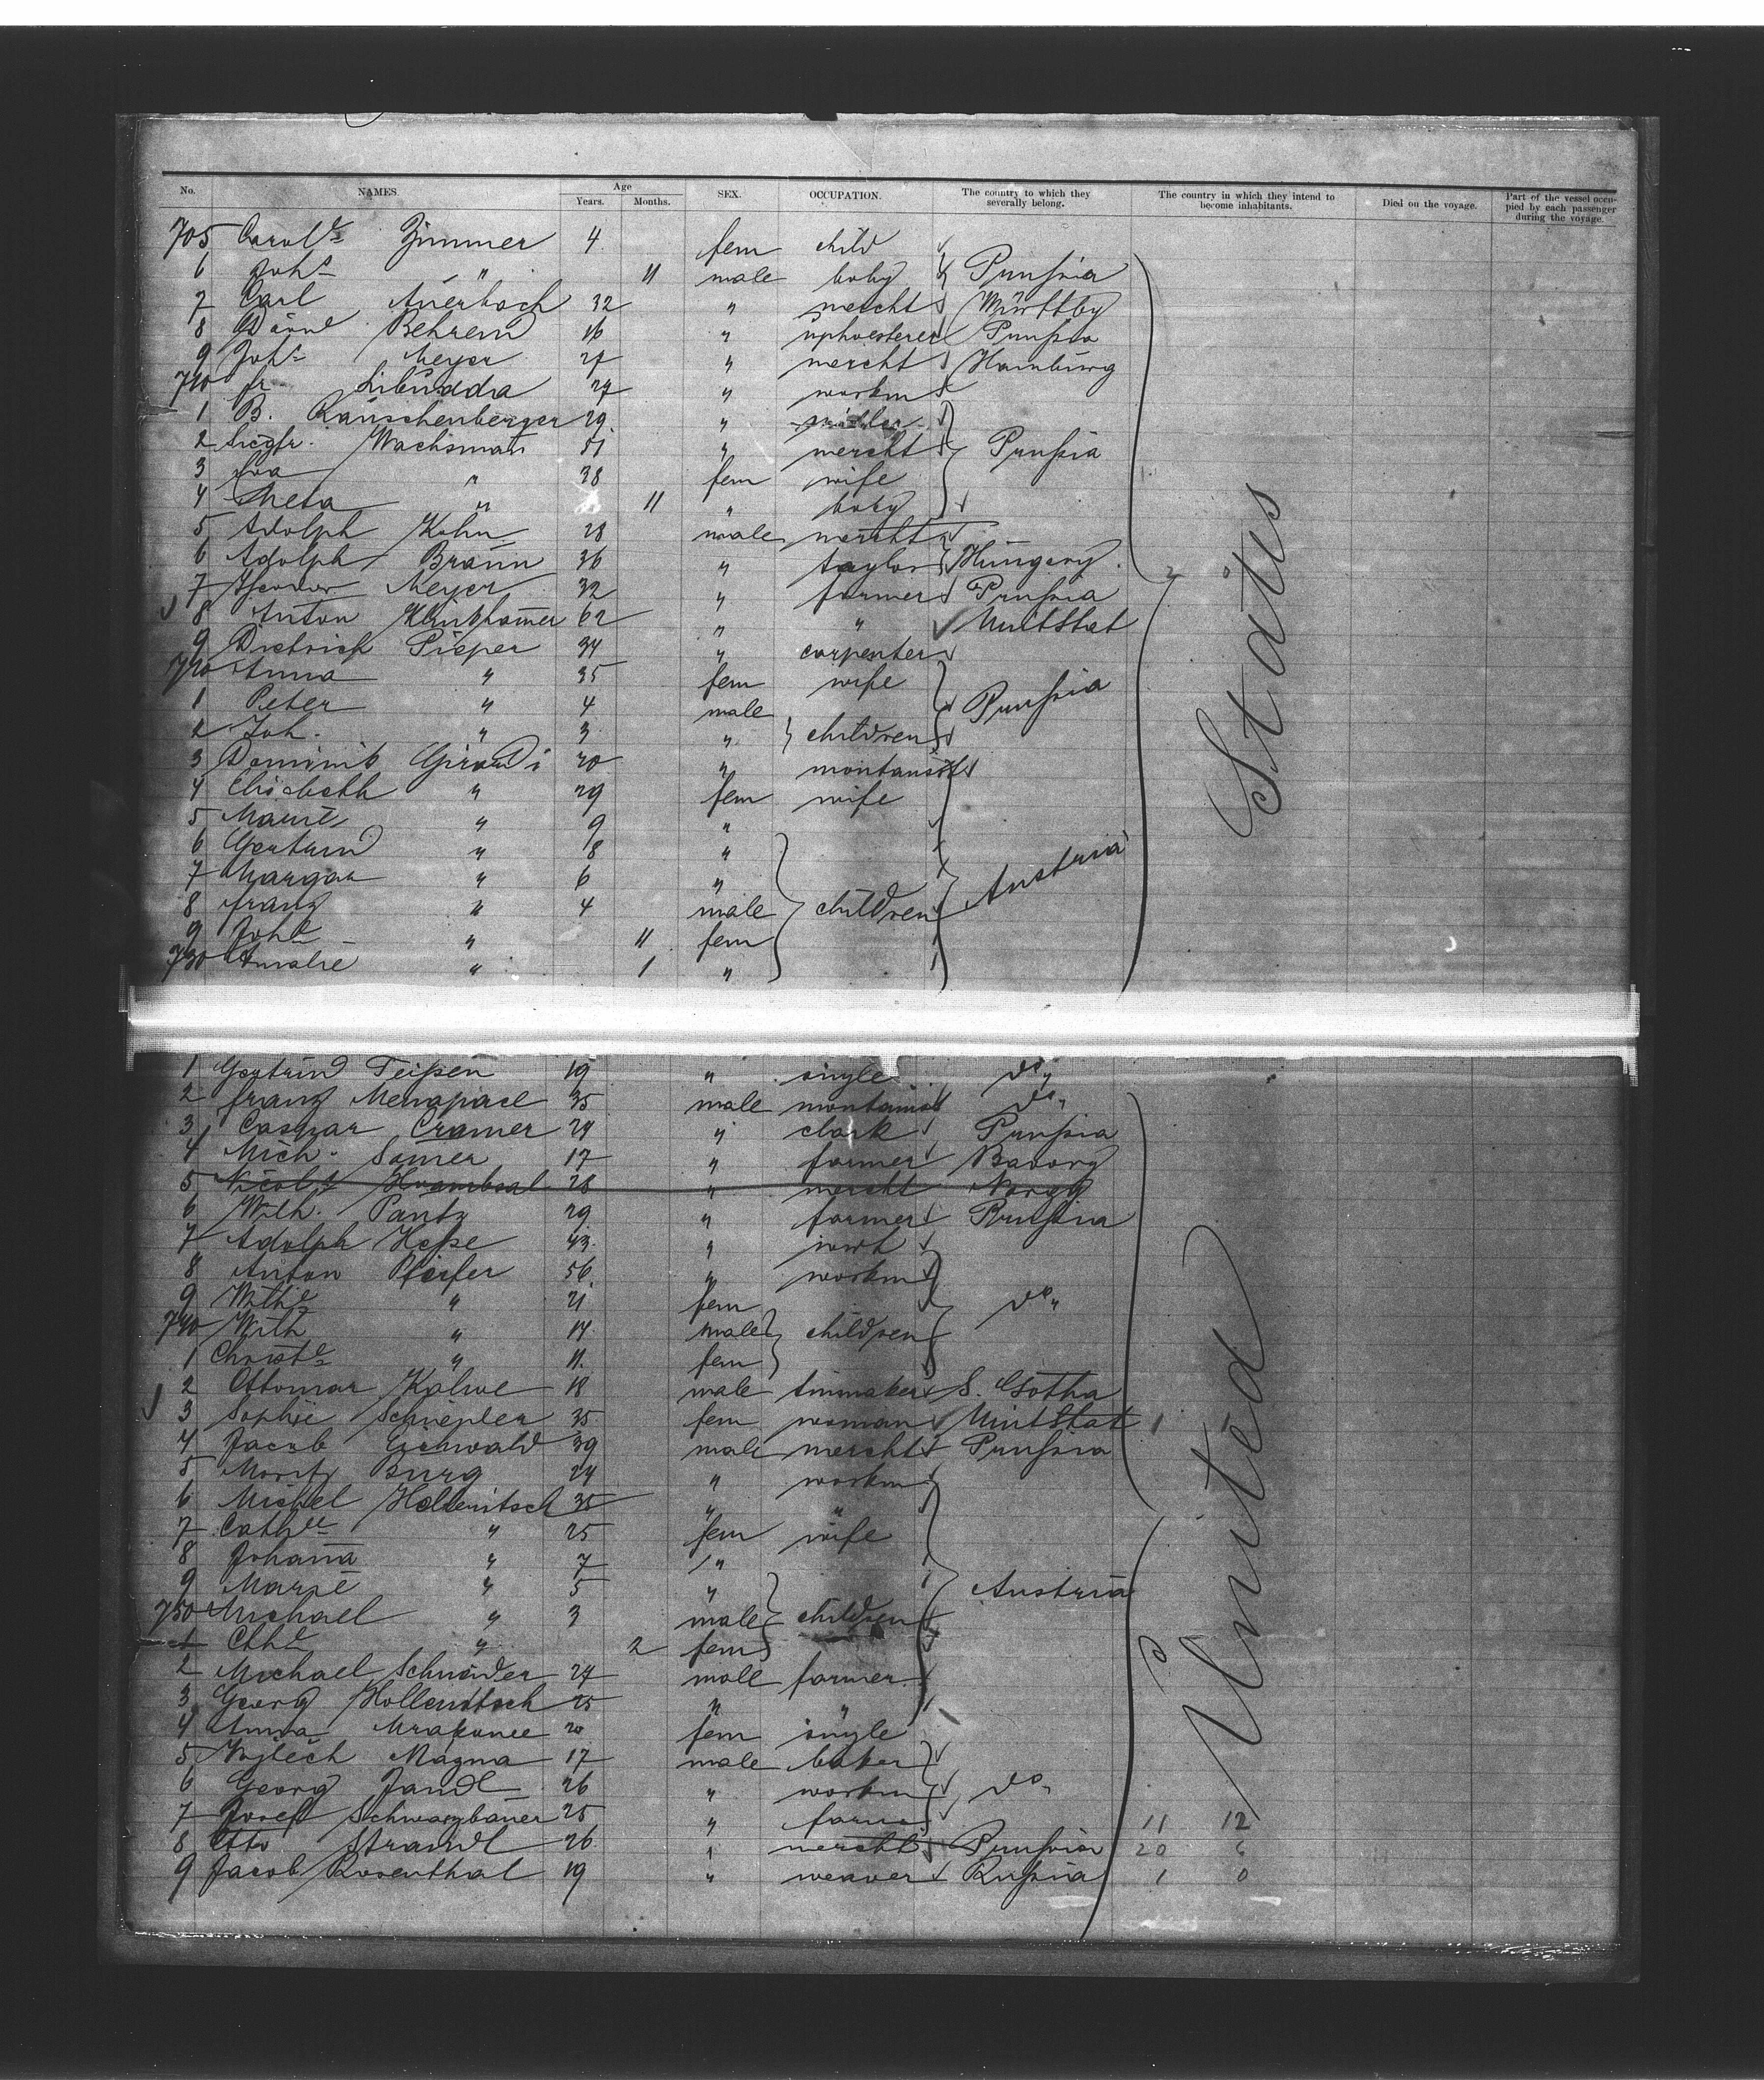 No. NAMES. Age Years. Months. SEX. OCCUPATION. The country to which they severally belong. The country in which they intend to become inhabitants. Died on the voyage. Part of the vessel occupied by each passenger during the voyage.
705 Carol^e Zimmer 4 fem child
6 Joh^s " 11 male baby Prussia
7 Carl Auerbach 32 " mercht Württbg
8 Behrend 16 " upholsterer Prussia
9 Joh^s Meyer 27 " mercht Hamburg
710 fr 27 " workm
1 B. Rauschenberger 29 "
2 Siegfr. Wachsman 51 " mercht Prussia
3 Eva " 38 fem wife
4 Meta " 11 " baby
5 Adolph Kohn 28 male mercht
6 Adolph Braun 36 " taylor Hungary.
7 Theodor Meyer 32 " farmer Prussia
8 Anton 62 " " UnitStat
9 Dietrich Pieper 34 " carpenter
720 Anna " 35 fem wife
1 Peter " 4 male Prussia
2 Joh. " 3 " children
3 Dominik Girardi 20 " montanist
4 Elisabeth " 29 fem wife
5 Marie " 9 "
6 Gertrud " 8 "
7 Margar " 6 " Austria
8 franz " 4 male children
9 Joh^e " 11 fem
730 Amalie " 1 "
States
1 Gertrud Teissen 19 " single do "
2 franz Menapace 35 male montanist do "
3 Caspar Cramer 24 " clark Prussia
4 Mich. Somer 17 " farmer Bavary
5 Nicol^s 28 " mercht Norgy
6 Wilh. Pantz 29 " farmer Prussia
7 Adolph Hesse 43 "
8 Anton Pfeifer 56 " workm
9 Wilh^e " 21 fem do "
740 Wilh " 14 male children
1 Christ^e " 11 fem
2 Ottomar Kalwe 18 male tinmaker S. Gotha
3 Sophie Schnepler 35 fem woman UnitStat 1
4 Jacob Eichwald 39 male mercht Prussia
5 Moritz Burg 24 " workm
6 Michel Hollenitsch 35 " "
7 Cath^e " 25 fem wife
8 Johanna " 7 "
9 Marie " 5 " Austria
750 Michael " 3 male children
1 " 2 fem
2 Michael Schneider 24 male farmer
3 Georg Hollenitsch 25 " "
4 Anna 20 fem single
5 Magma 17 male baker
6 Georg Jandl 26 " workm do "
7 Josef Schwarzbauer 25 " farm 11 12
8 Otto Strandt 26 " mercht Prussia 20 6
9 Jacob Rosenthal 19 " weaver Russia 1 0
United